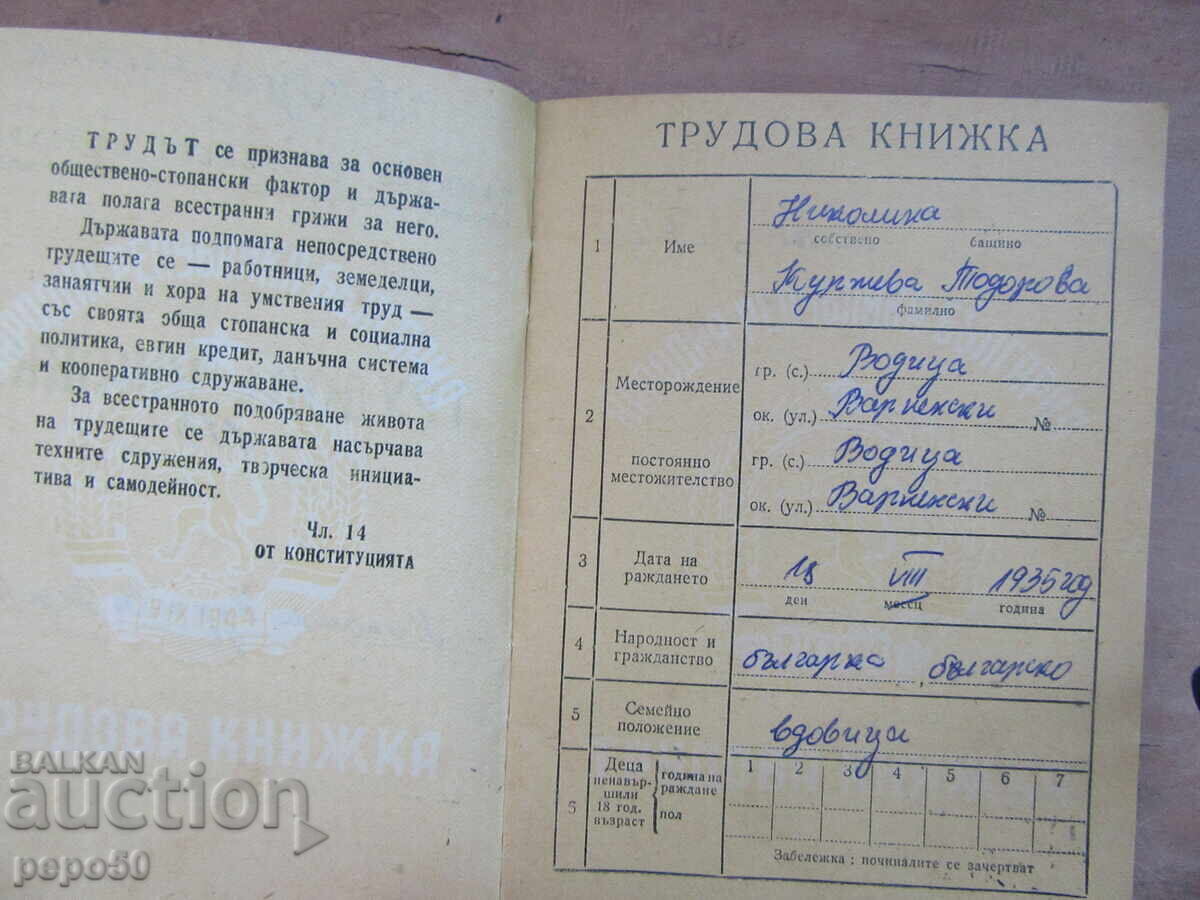 ТРУДЪТ се признава за основен
обществено-стопански фактор и държа-
вата полага всестранни грижи за него.
Държавата подпомага непосредствено
трудещите се — работници, земеделци,
занаятчии и хора на умствения труд —
със своята обща стопанска и социална
политика, евтин кредит, данъчна система
и кооперативно сдружаване.
За всестранното подобряване живота
на трудещите се държавата насърчава
техните сдружения, творческа инициа-
тива и самодейност.
Чл. 14
ОТ КОНСТИТУЦИЯТА
ТРУДОВА КНИЖКА
1 Име Николина
собствено бащино
Куржева Тодорова
фамилно
2 Месторождение гр. (с.) Водица
ок. (ул.) Варненски №
постоянно местожителство гр. (с.) Водица
ок. (ул.) Варненски №
3 Дата на раждането 18 VIII 1935 год
ден месец година
4 Народност и гражданство българка, българско
5 Семейно положение вдовица
5 Деца ненавър-шили 18 год. възраст година на раждане 1 2 3 4 5 6 7
пол
Забележка: починалите се зачертват
BALKAN
auction
pepo50